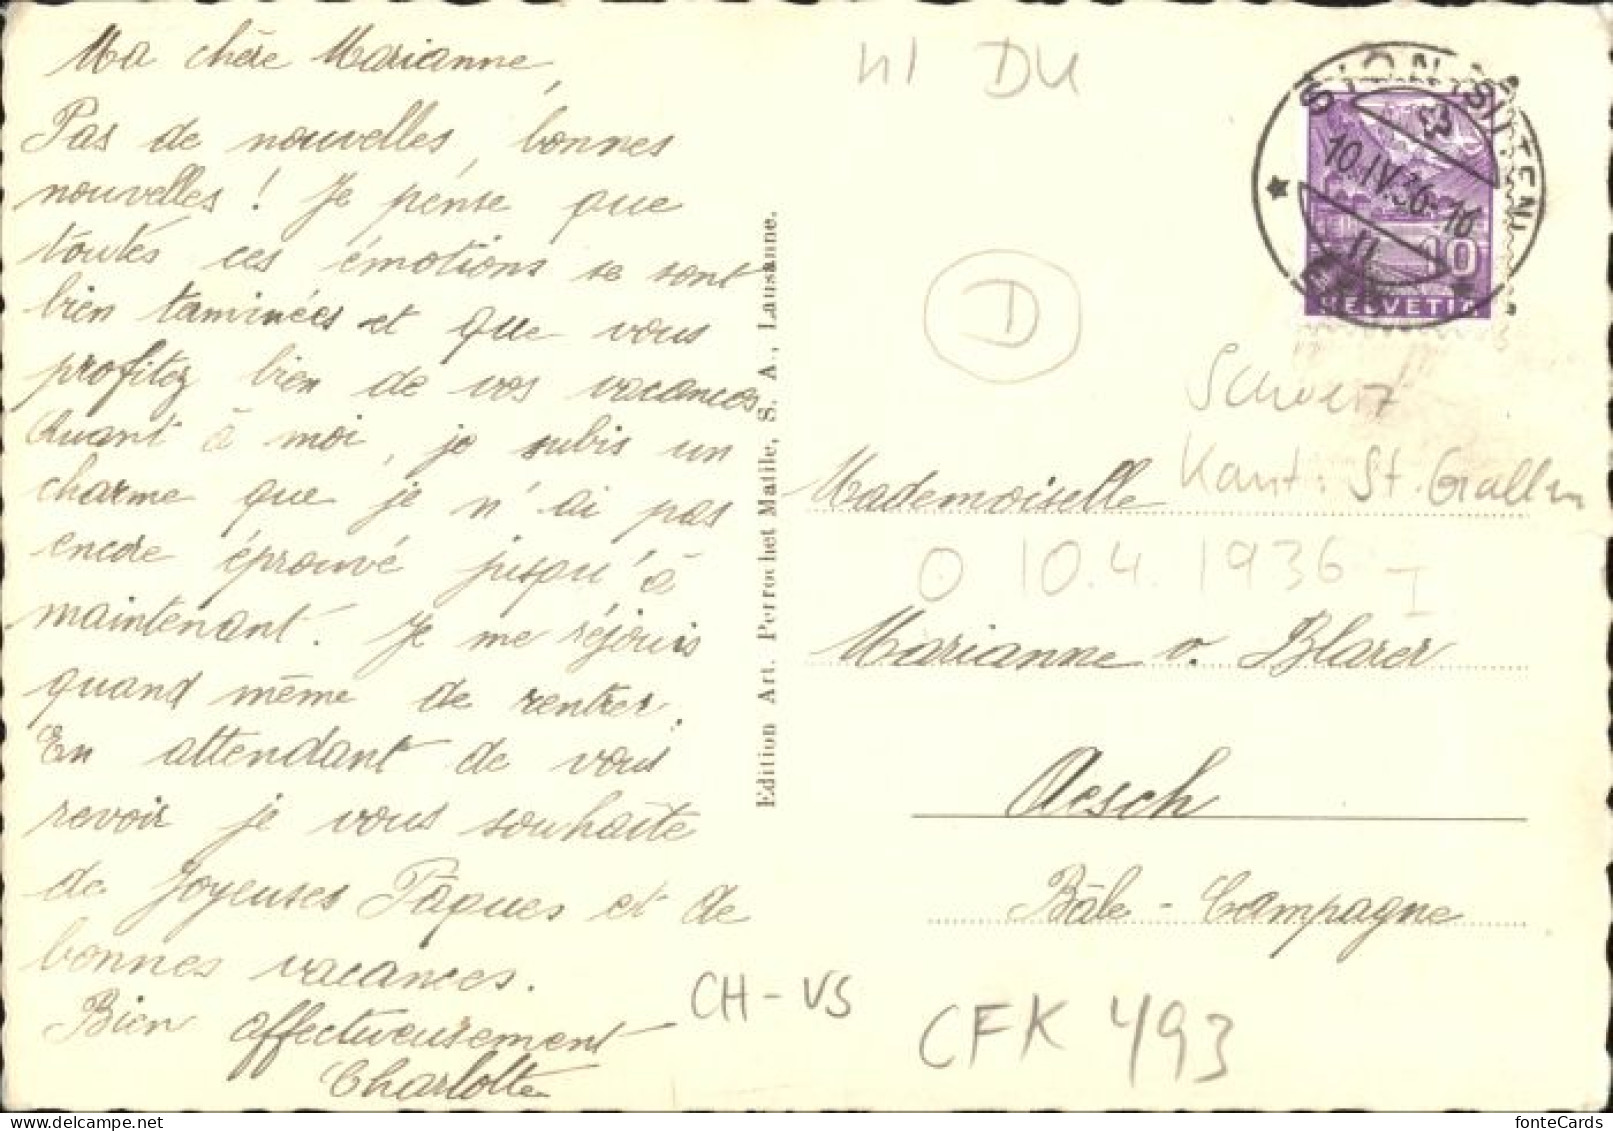 Ma chère Marianne,
Pas de nouvelles, bonnes
nouvelles ! Je pense que
toutes ces émotions se sont
bien taminées et que vous
profitez bien de vos vacances.
Quant à moi, je subis un
charme que je n'ai pas
encore éprouvé jusqu'à
maintenant. Je me réjouis
quand même de rentrer.
En attendant de vous
revoir je vous souhaite
de Joyeuses Pâques et de
bonnes vacances.
Bien affectueusement
Charlotte
Edition Art. Perrochet Matile, S. A., Lausanne.
DU
D
SION SITTEN
10.IV.36-16
II
10
HELVETIA
Schweiz
Kant. St. Gallen
Mademoiselle
O 10.4.1936 I
Marianne v. Blarer
Aesch
Bâle-Campagne
CH-VS
CFK 493
fonteCards